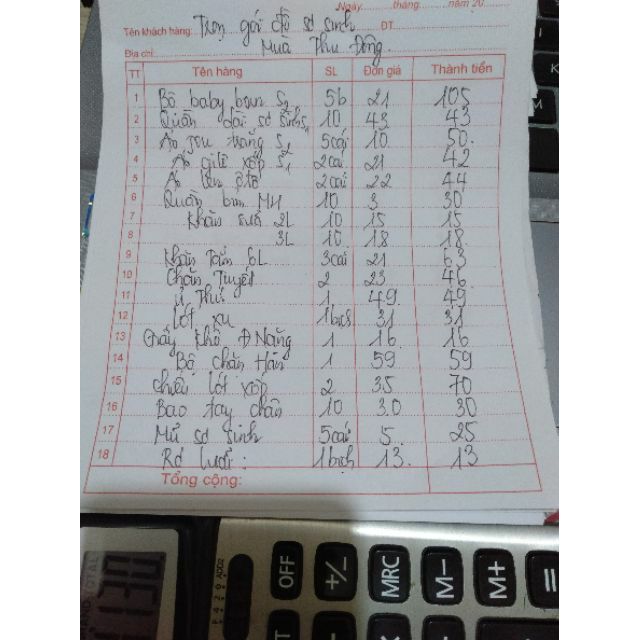 Ngày......... tháng......... năm 20......
Tên khách hàng: Trọn gói đồ sơ sinh ĐT
Địa chỉ: Mùa Thu Đông
TT Tên hàng SL Đơn giá Thành tiền
1 Bộ baby born S2 5b 21 105
2 Quần dài sơ sinh S1 10 43 43
3 Áo sơ trắng S2 5cái 10 50
4 Áo gile xốp S1 2cái 21 42
5 Áo len ôtô 2cái 22 44
6 Quần bm MH 10 3 30
7 Khăn sữa 2L 10 15 15
8 3L 10 18 18
9 Khăn tắm 6L 3cái 21 63
10 Chăn Tuyết 2 23 46
11 Ủ Thú 1 49 49
12 Lót xu 1bịch 31 31
13 Giấy khô Đ Năng 1 16 16
14 Bộ chăn Hàn 1 59 59
15 chiếu lót xốp 2 35 70
16 Bao tay chân 10 3.0 30
17 Mũ sơ sinh 5cái 5 25
18 Rơ lưỡi: 1bịch 13 13
Tổng cộng:
OFF +/− MRC M− M+ =